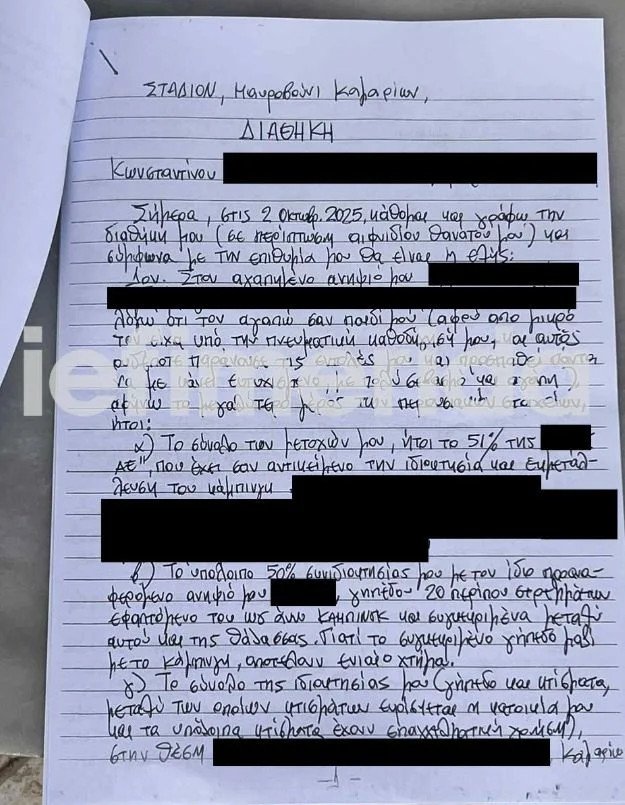 ΣΤΑΔΙΟΝ, Μαυροβούνι Καμαρίων,
ΔΙΑΘΗΚΗ
Κωνσταντίνου
Σήμερα, στις 2 Οκτωβρ. 2025, κάθομαι και γράφω την
διαθήκη μου (σε περίπτωση αιφνιδίου θανάτου μου) και
σύμφωνα με την επιθυμία μου θα είναι η εξής:
1ον. Στον αγαπημένο ανηψιό μου
λόγω ότι τον αγαπώ σαν παιδί μου (αφού απο μικρό
τον είχα υπό την πνευματική καθοδήγησή μου, και αυτός
ουδέποτε παράκουσε τις εντολές μου και προσπαθ πάντα
να με κάνει ευτυχισμένο, με
αφήνω
ήτοι:
α) Το σύνολο των μετοχών μου, ήτοι το 51% της
ΑΕ", που έχει σαν αντικείμενο την ιδιοκτησία και εκμετάλ-
λευση του κάμπινγκ
β) Το υπόλοιπο 50% συνιδιοκτησίας μου με τον ίδιο προανα-
φερόμενο ανηψιό μου, γηπέδου 20 περίπου στρεμμάτων
εφαπτόμενο του ως άνω ΚΑΜΠΙΝΓΚ και συγκεκριμένα μεταξύ
αυτού και της θάλασσας. Γιατί το συγκεκριμένο γήπεδο μαζί
με το κάμπινγκ, αποτελούν ενιαίο κτήμα.
γ) Το σύνολο της ιδιοκτησίας μου (γήπεδο και κτίσματα,
μεταξύ των οποίων κτισμάτων ευρίσκεται η κατοικία μου
και τα υπόλοιπα κτίσματα έχουν επαγγελματική χρήση),
στην θέση Καμαρίων
-1-